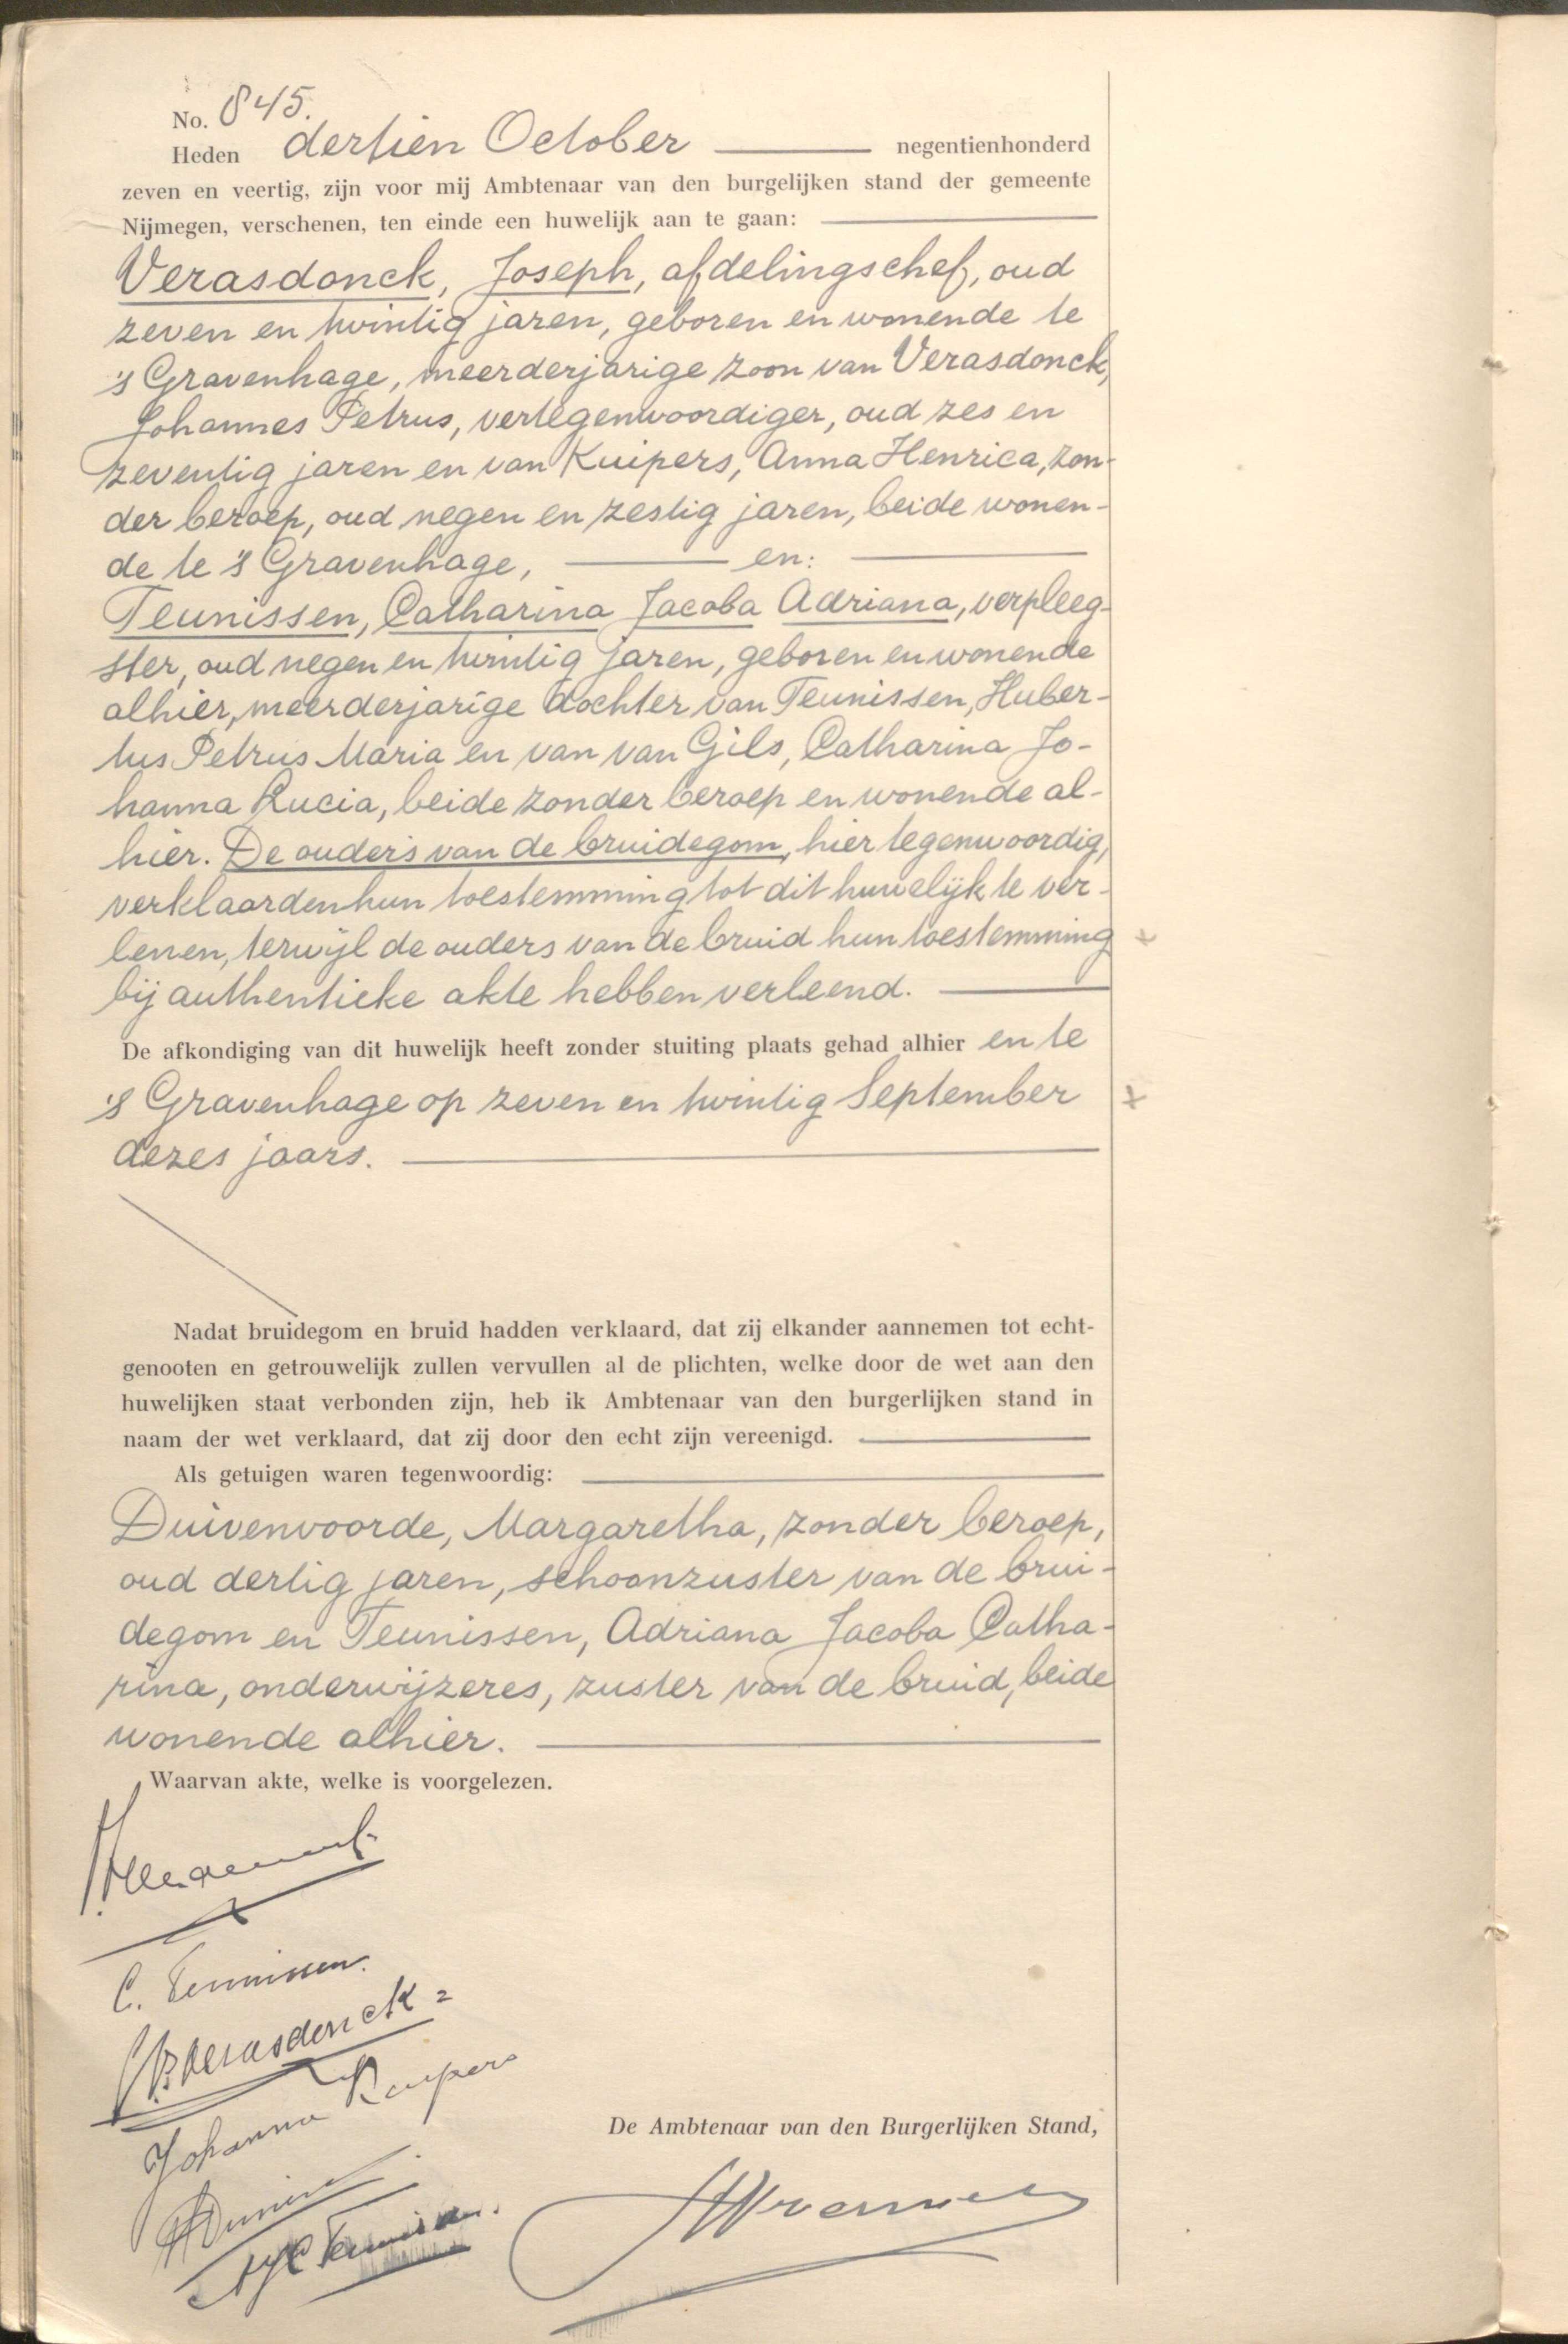 No. 845.
Heden dertien October negentienhonderd
zeven en veertig, zijn voor mij Ambtenaar van den burgelijken stand der gemeente
Nijmegen, verschenen, ten einde een huwelijk aan te gaan:
Verasdonck, Joseph, afdelingschef, oud
zeven en twintig jaren, geboren en wonende te
's Gravenhage, meerderjarige zoon van Verasdonck,
Johannes Petrus, vertegenwoordiger, oud zes en
zeventig jaren en van Kuipers, Anna Henrica, zon-
der beroep, oud negen en zestig jaren, beide wonen-
de te 's Gravenhage, en:
Teunissen, Catharina Jacoba Adriana, verpleeg-
ster, oud negen en twintig jaren, geboren en wonende
alhier, meerderjarige dochter van Teunissen, Huber-
tus Petrus Maria en van van Gils, Catharina Jo-
hanna Lucia, beide zonder beroep en wonende al-
hier. De ouders van de bruidegom, hier tegenwoordig,
verklaarden hun toestemming tot dit huwelijk te ver-
lenen, terwijl de ouders van de bruid hun toestemming
bij authentieke akte hebben verleend.
De afkondiging van dit huwelijk heeft zonder stuiting plaats gehad alhier en te
's Gravenhage op zeven en twintig September
dezes jaars.
Nadat bruidegom en bruid hadden verklaard, dat zij elkander aannemen tot echt-
genooten en getrouwelijk zullen vervullen al de plichten, welke door de wet aan den
huwelijken staat verbonden zijn, heb ik Ambtenaar van den burgerlijken stand in
naam der wet verklaard, dat zij door den echt zijn vereenigd.
Als getuigen waren tegenwoordig:
Duivenvoorde, Margaretha, zonder beroep,
oud dertig jaren, schoonzuster van de brui-
degom en Teunissen, Adriana Jacoba Catha-
rina, onderwijzeres, zuster van de bruid, beide
wonende alhier.
Waarvan akte, welke is voorgelezen.
C. Teunissen.
Verasdonck
Johanna Kuipers
De Ambtenaar van den Burgerlijken Stand,
AJC Teunissen.